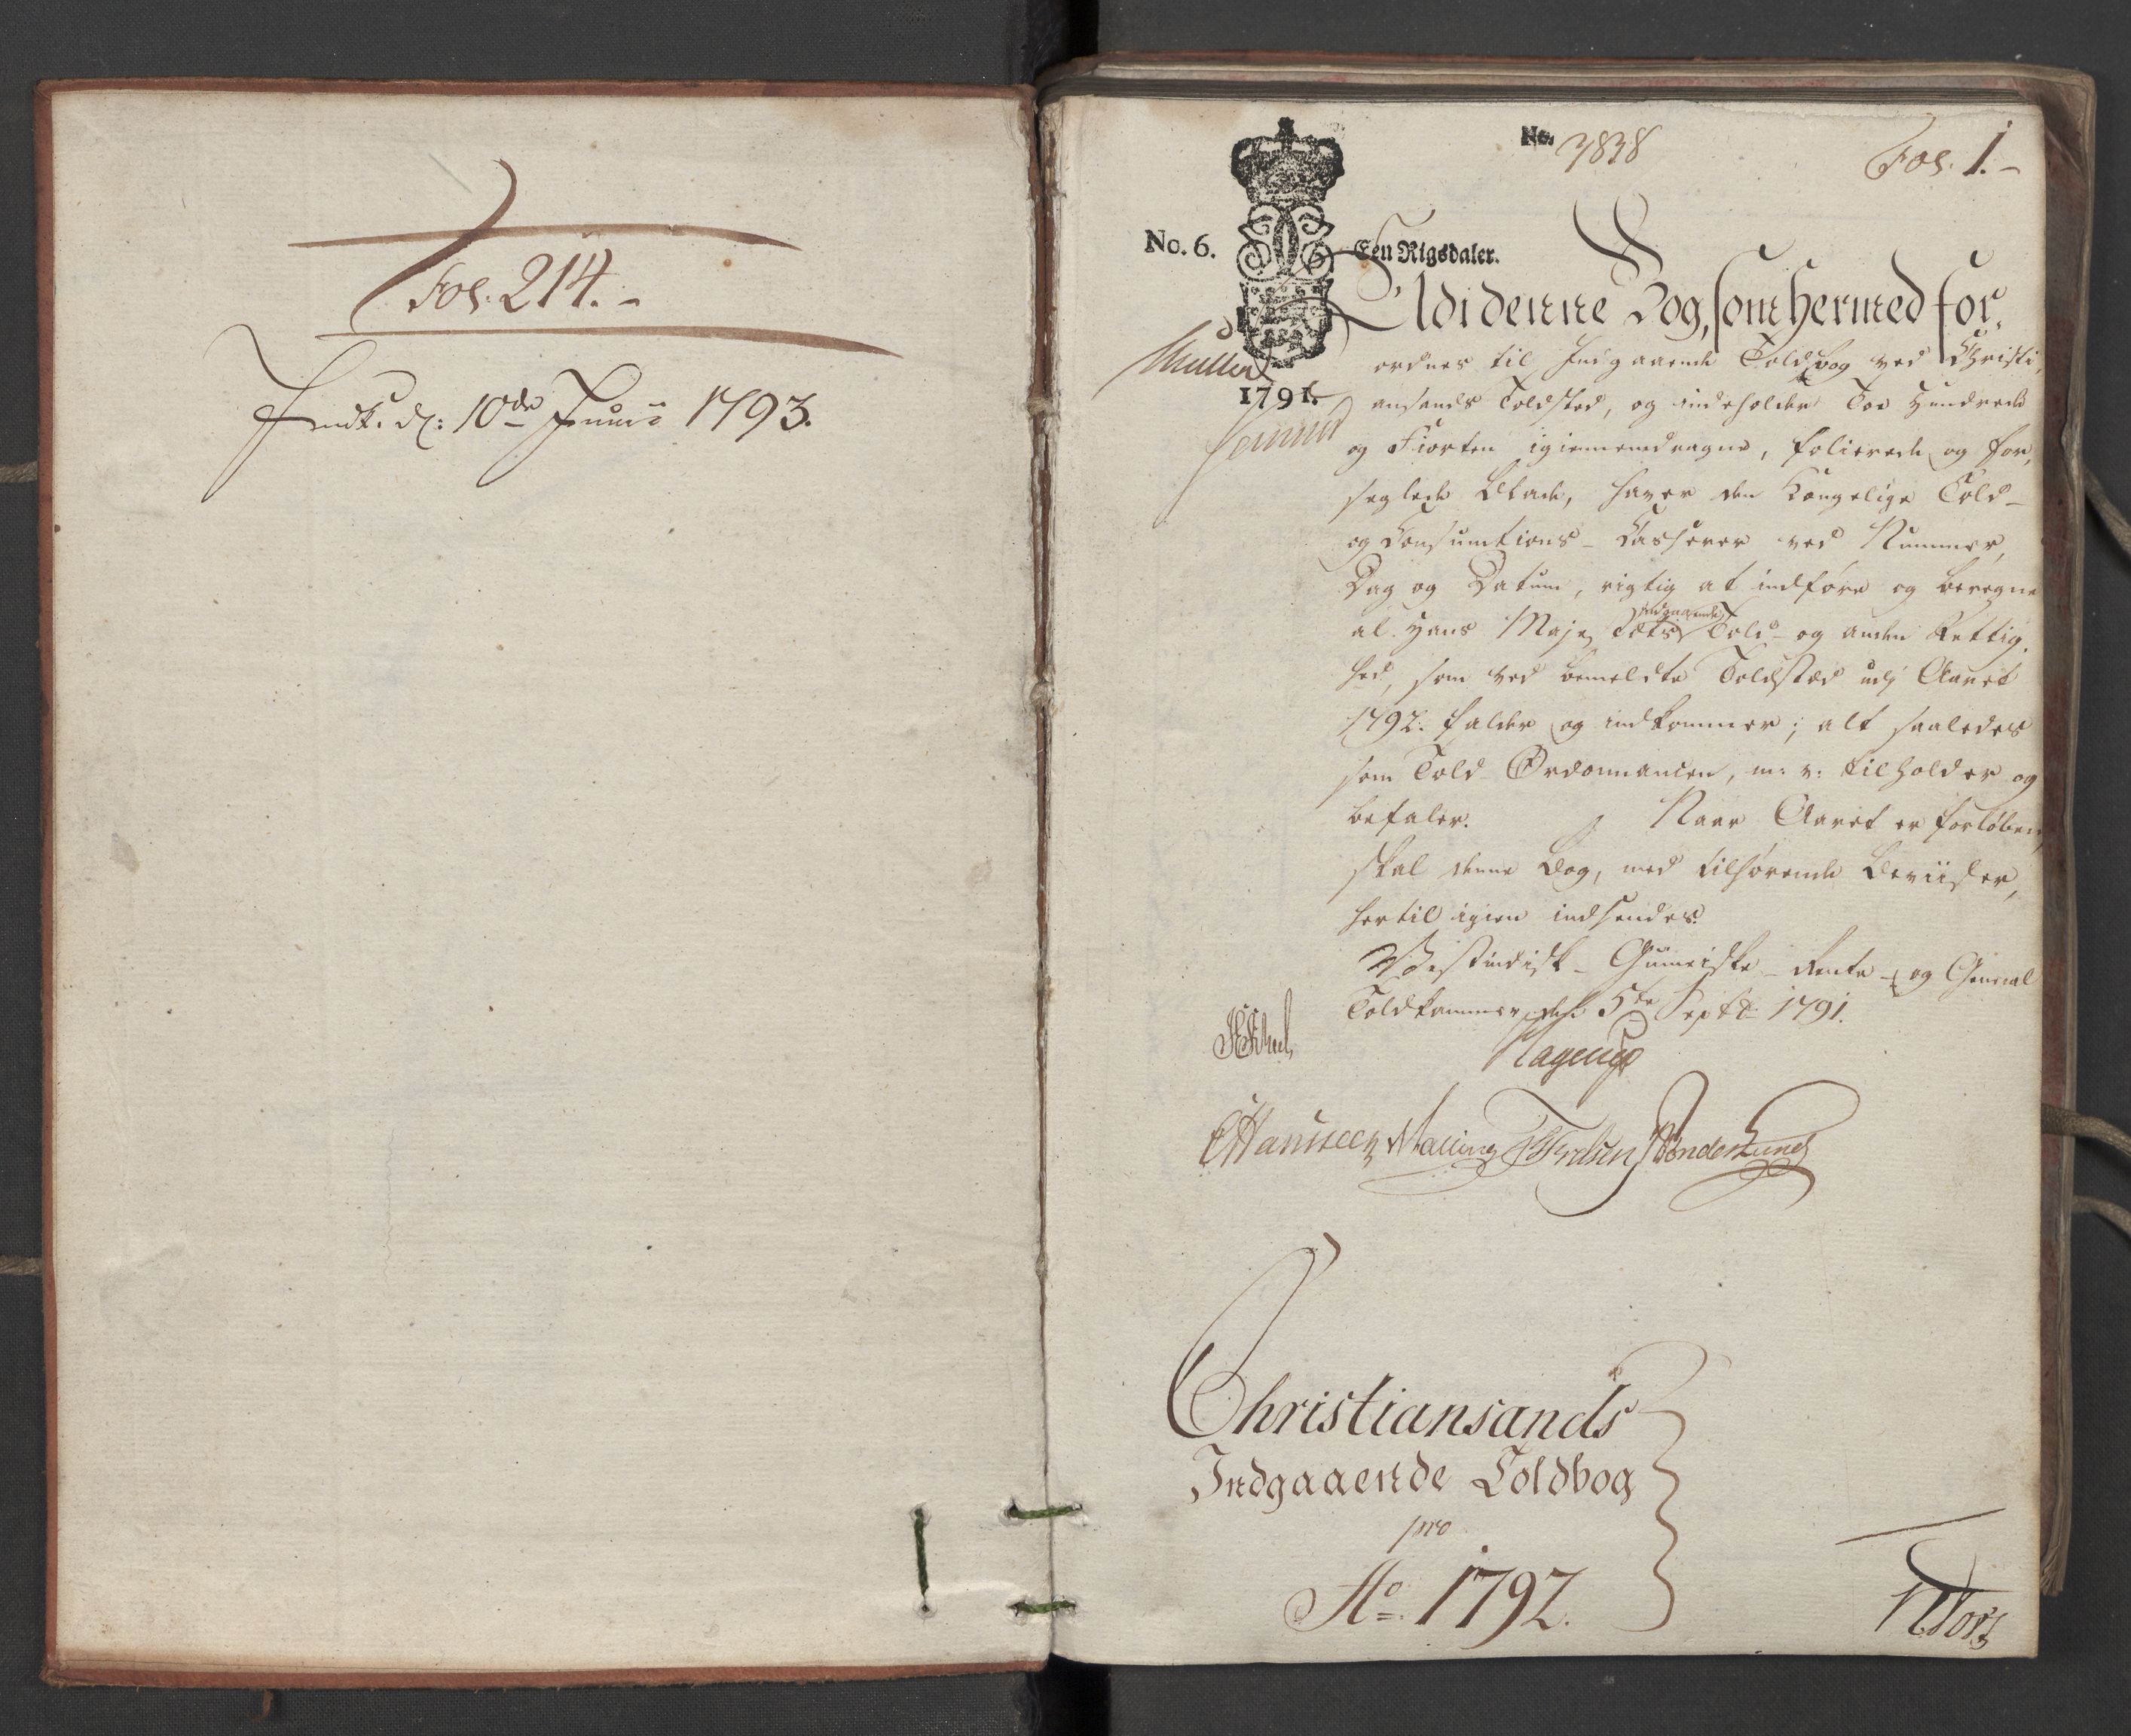 Fol. 214.-
Indk. d: 10de Junii 1793.
No. 3838
Fol. 1.-
No. 6.
Een Rigsdaler.
Udi denne Bog, som hermed for,
ordnes til Indgaaende Toldbog ved Christi,
ansands Toldsted, og indeholder Toe Hundrede
Müller
1791.
og Fiorten igiennemdragne, folierede og for,
seglede Blade, haver den Kongelige Told-
og Consumtions-Casserer ved Nummer,
Dag og Datum, rigtig at indføre og beregne
al Hans Majestæts indgaaende Told- og anden Rettig,
hed, som ved bemeldte Toldsted udj Aaret
1792. falder og indkommer; alt saaledes
som Told-Ordonnancen, m: v: tilholder og
befaler. Naar Aaret er forløben,
skal denne Bog, med tilhørende Beviiser,
hertil igien indsendes.
Vestindisk-Guineiske-Rente- og General
Toldkammer, den 5te Septbr 1791.
Hagerup
Malling
Christiansands
Indgaaende Toldbog
pro
Ao. 1792.